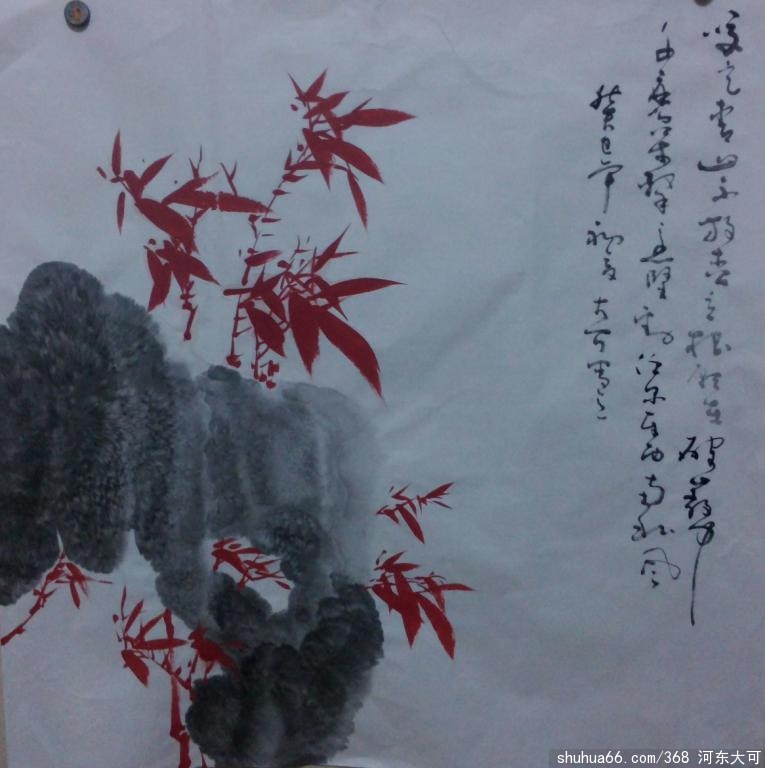 咬定青山不放松立根原在破巖中
千磨万擊还坚劲任尔东西南北风
癸巳年初夏大可画之
shuhua66.com/368 河东大可